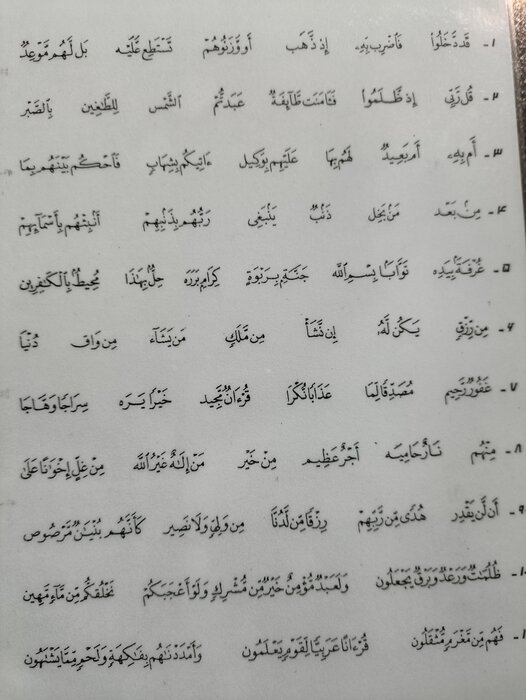 ۱- قَد دَّخَلُوا۟ فَٱضْرِب بِّهِۦ إِذ ذَّهَبَ أَو وَّزَنُوهُمْ تَسْتَطِع عَّلَيْهِ بَل لَّهُم مَّوْعِدٌ
۲- قُل رَّبِّى إِذ ظَّلَمُوا۟ فَـَٔامَنَت طَّآئِفَةٌ عَبَدتُّمْ ٱلشَّمْسَ لِلطَّٰغِينَ بِٱلصَّبْرِ
۳- أَم بِهِۦ أَم بَعِيدٌ لَهُم بِهَا عَلَيْهِم بِوَكِيلٍ ءَاتِيكُم بِشِهَابٍ فَٱحْكُم بَيْنَهُم بِمَا
۴- مِنۢ بَعْدِ مَنۢ بَخِلَ ذَنۢبٌ يَنۢبَغِى رَبُّهُم بِذَنۢبِهِمْ أَنۢبِئْهُم بِأَسْمَآئِهِمْ
۵- غُرْفَةًۢ بِيَدِهِ تَوَّابًۢا بِسْمِ ٱللَّهِ جَنَّةٍۭ بِرَبْوَةٍ كِرَامٍۭ بَرَرَةٍ حِلٌّۢ بِهَٰذَا مُحِيطٌۢ بِٱلْكَٰفِرِينَ
۶- مِن رِّزْقٍ يَكُن لَّهُۥ إِن نَّشَأْ مِن مَّلَكٍ مَن يَشَآءُ مِن وَاقٍ دُنْيَا
۷- غَفُورٌ رَّحِيمٌ مُصَدِّقًا لِّمَا عَذَابًا نُّكْرًا قُرْءَانٌ مَّجِيدٌ خَيْرًا يَرَهُ سِرَاجًا وَهَّاجًا
۸- مِنْهُمْ نَارٌ حَامِيَه أَجْرٌ عَظِيمٌ مِنْ خَيْرٍ مَنْ إِلَٰهٌ غَيْرُ ٱللَّهِ مِنْ غِلٍّ إِخْوَٰنًا عَلَىٰ
۹- أَن لَّن يَقْدِرَ هُدًى مِّن رَّبِّهِمْ رِزْقًا مِّن لَّدُنَّا مِن وَلِىٍّ وَلَا نَصِيرٍ كَأَنَّهُم بُنْيَٰنٌ مَّرْصُوصٌ
۱۰- ظُلُمَٰتٌ وَرَعْدٌ وَبَرْقٌ يَجْعَلُونَ وَلَعَبْدٌ مُّؤْمِنٌ خَيْرٌ مِّن مُّشْرِكٍ وَلَوْ أَعْجَبَكُمْ نَخْلُقكُّم مِّن مَّآءٍ مَّهِينٍ
فَهُم مِّن مَّغْرَمٍ مُّثْقَلُونَ قُرْءَانًا عَرَبِيًّا لِّقَوْمٍ يَعْلَمُونَ وَأَمْدَدْنَٰهُم بِفَٰكِهَةٍ وَلَحْمٍ مِّمَّا يَشْتَهُونَ